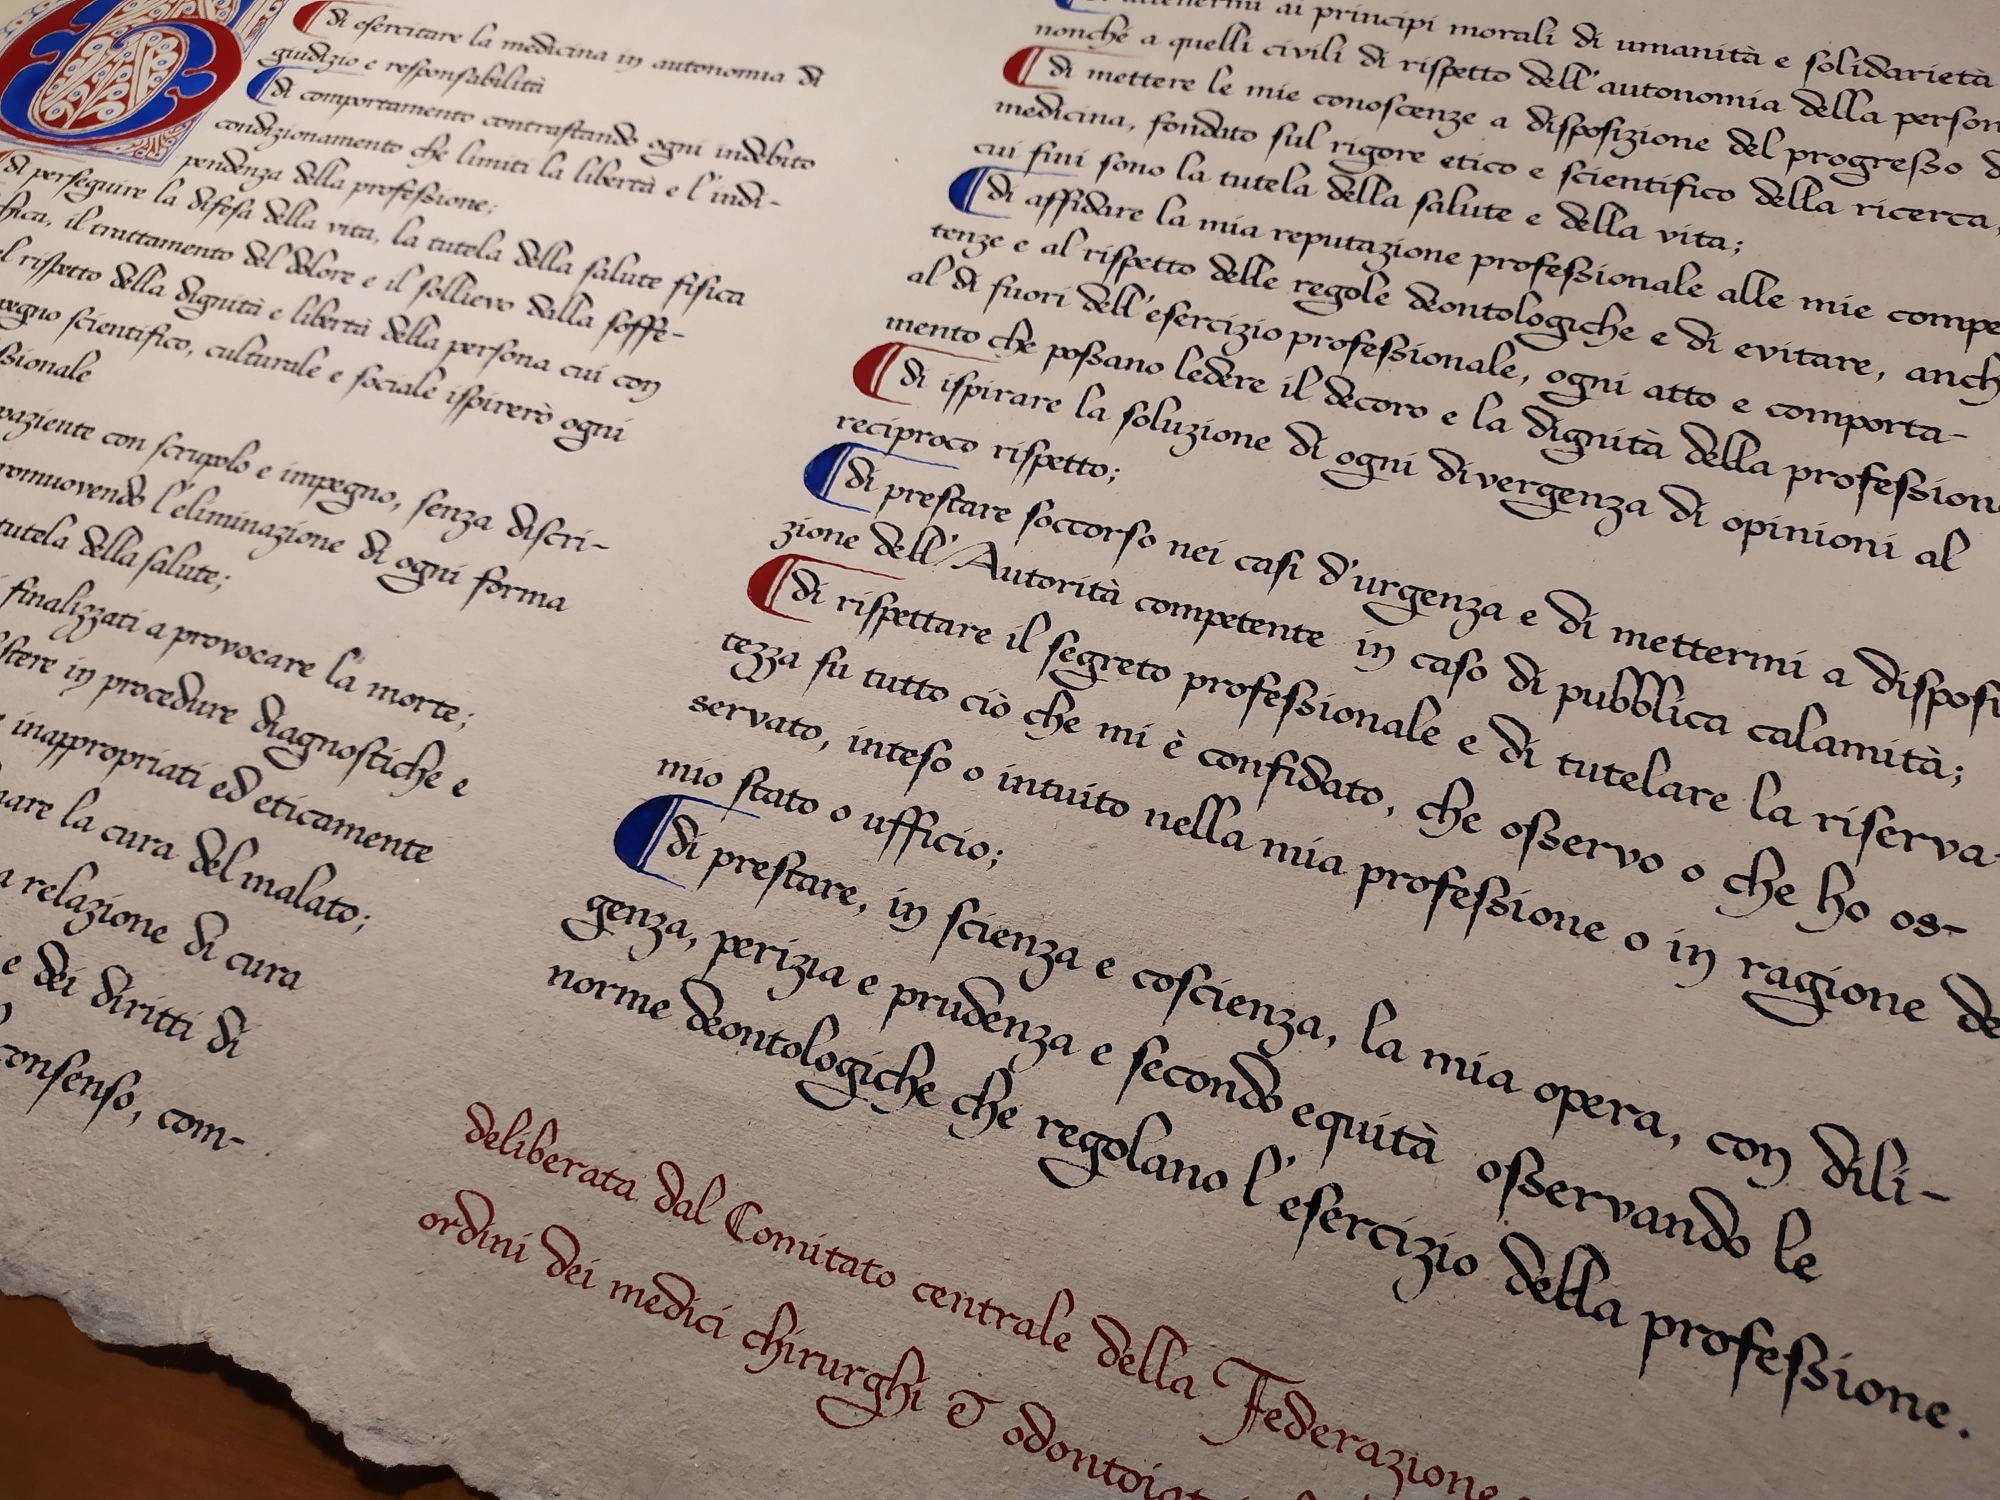 di esercitare la medicina in autonomia di
giudizio e responsabilità
di comportamento contrastando ogni indebito
condizionamento che limiti la libertà e l'indi-
pendenza della professione;
di perseguire la difesa della vita, la tutela della salute fisica
il trattamento del dolore e il sollievo dalla soffe-
rispetto della dignità e libertà della persona cui con
scientifico, culturale e sociale ispirerò ogni
con scrupolo e impegno, senza discri-
l'eliminazione di ogni forma
tutela della salute;
finalizzati a provocare la morte;
in procedure diagnostiche e
inappropriati ed eticamente
la cura del malato;
relazione di cura
e dei diritti di
consenso, com-
attenermi ai principi morali di umanità e solidarietà
nonché a quelli civili di rispetto dell'autonomia della
di mettere le mie conoscenze a disposizione del progresso
medicina, fondato sul rigore etico e scientifico della ricerca,
cui fini sono la tutela della salute e della vita;
di affidare la mia reputazione professionale alle mie compe
tenze e al rispetto delle regole deontologiche e di evitare, anch
al di fuori dell'esercizio professionale, ogni atto e comporta-
mento che possano ledere il decoro e la dignità della profession
di ispirare la soluzione di ogni divergenza di opinioni al
reciproco rispetto;
di prestare soccorso nei casi d'urgenza e di mettermi a disposi
zione dell'Autorità competente in caso di pubblica calamità;
di rispettare il segreto professionale e di tutelare la riserva-
tezza su tutto ciò che mi è confidato, che osservo o che ho os-
servato, inteso o intuito nella mia professione o in ragione de
mio stato o ufficio;
di prestare, in scienza e coscienza, la mia opera, con dili-
genza, perizia e prudenza e secondo equità osservando le
norme deontologiche che regolano l'esercizio della professione.
deliberata dal Comitato centrale della Federazione
ordini dei medici chirurghi &